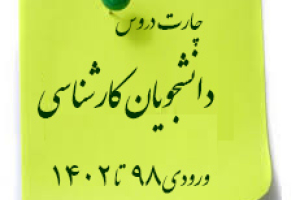 چارت دروس
دانشجویان کارشناسی
ورودی ۹۸ تا ۱۴۰۲